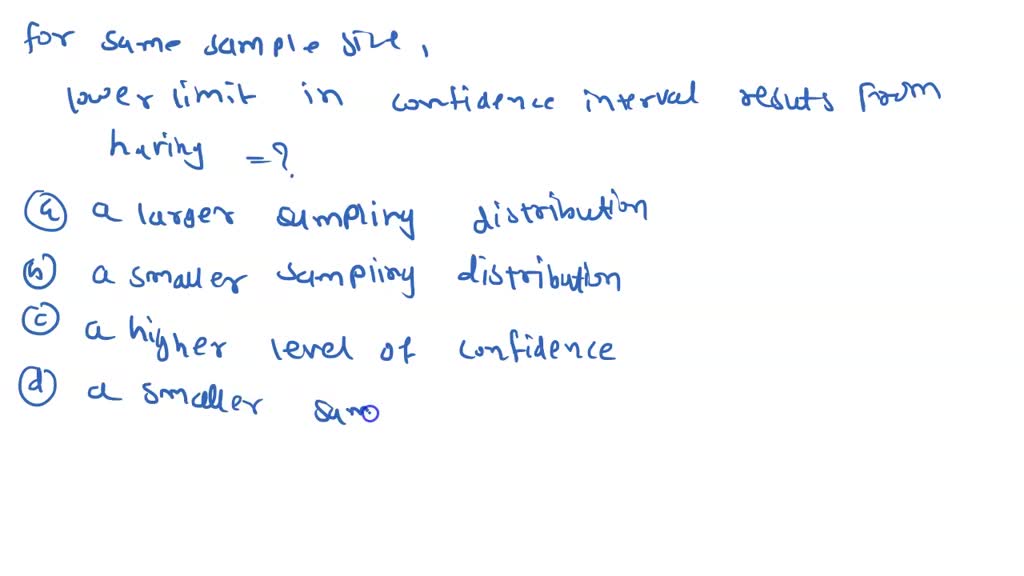 for same sample size,
lower limit in confidence interval results from
having =?
(a) a larger sampling distribution
(b) a smaller sampling distribution
(c) a higher level of confidence
(d) a smaller sam